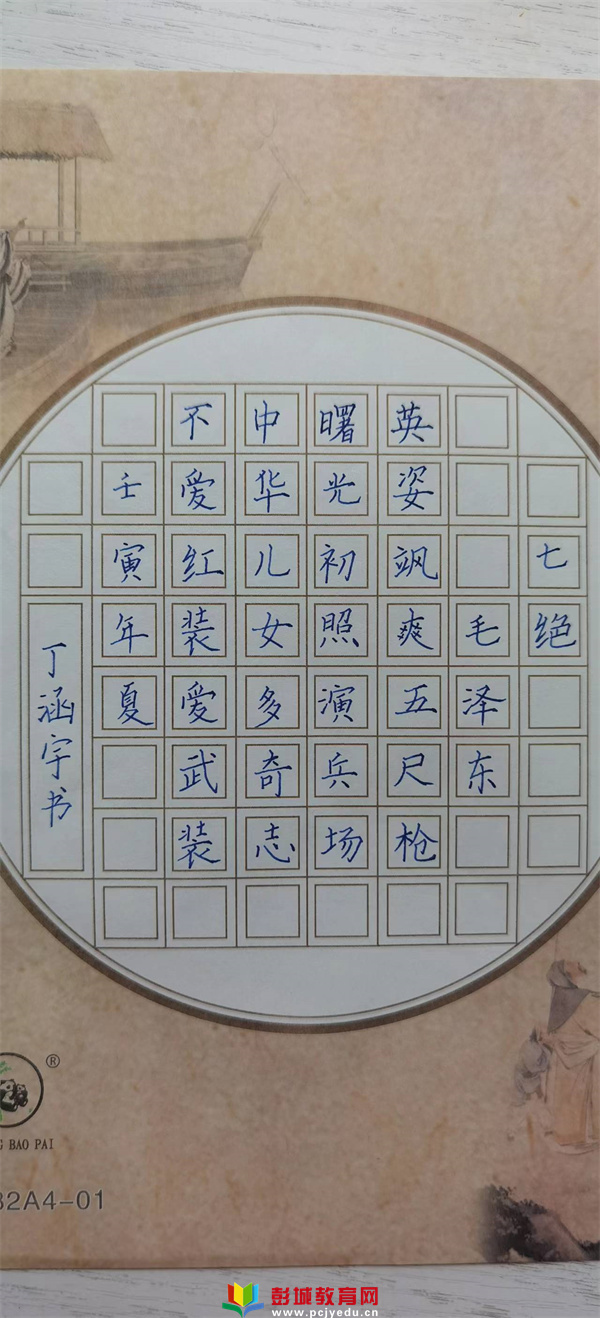 七绝
毛泽东
英姿飒爽五尺枪
曙光初照演兵场
中华儿女多奇志
不爱红装爱武装
壬寅年夏
丁涵宇书
®
BAO PAI
32A4-01
彭城教育网
www.pcjyedu.cn